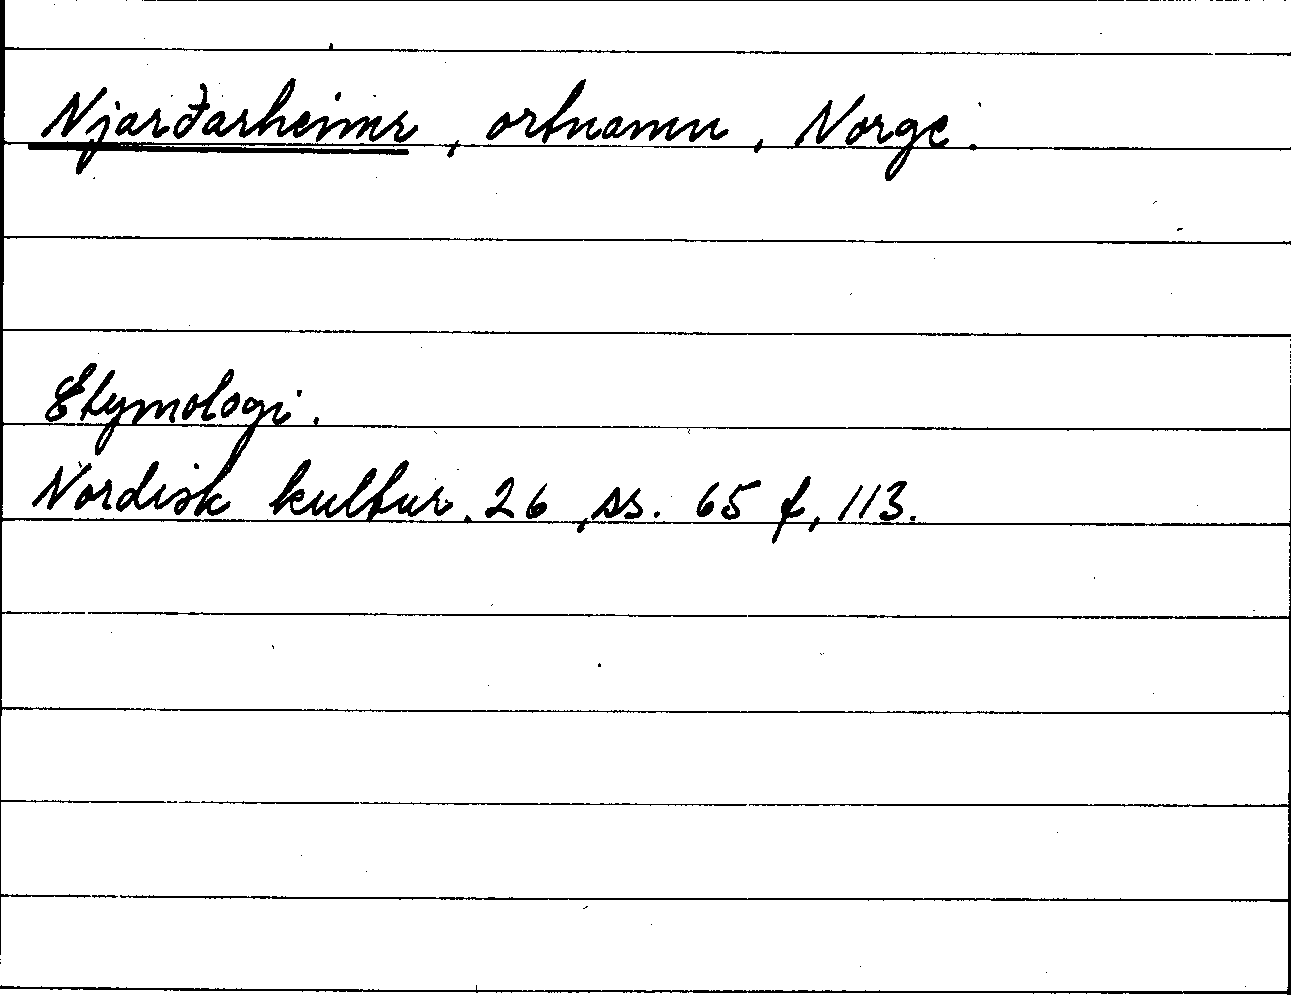 Njarðarheimr, ortnamn, Norge.
Etymologi.
Nordisk kultur. 26, ss. 65 f, 113.